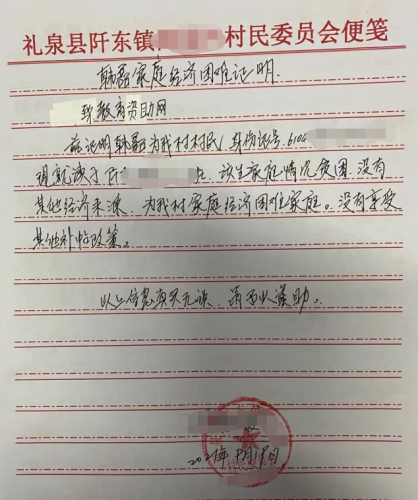 礼泉县阡东镇 村民委员会便笺
韩磊家庭经济困难证明.
致教育资助网
兹证明韩磊为我村村民,身份证号:6104
现就读于 该生家庭情况贫困,没有
其他经济来源,为我村家庭经济困难家庭。没有享受
其他补帖政策。
以上信息真实无误,请 资助。
年 月 日